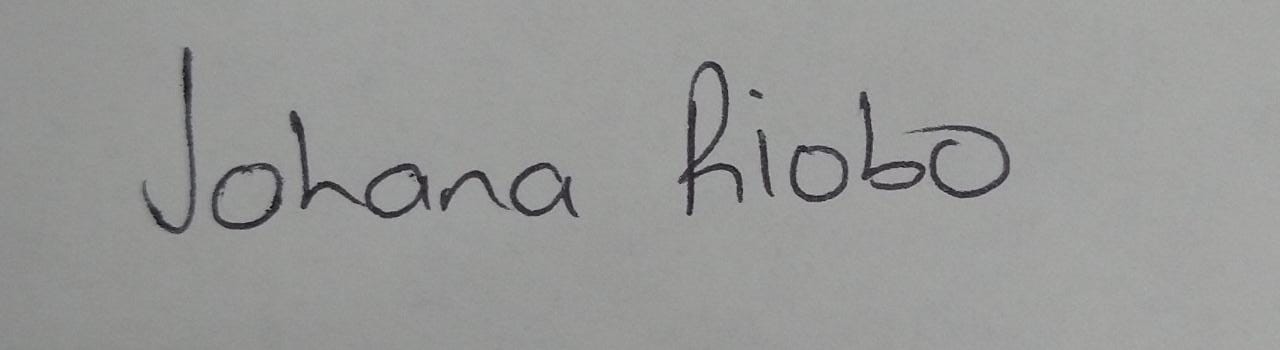 Johana Riobo